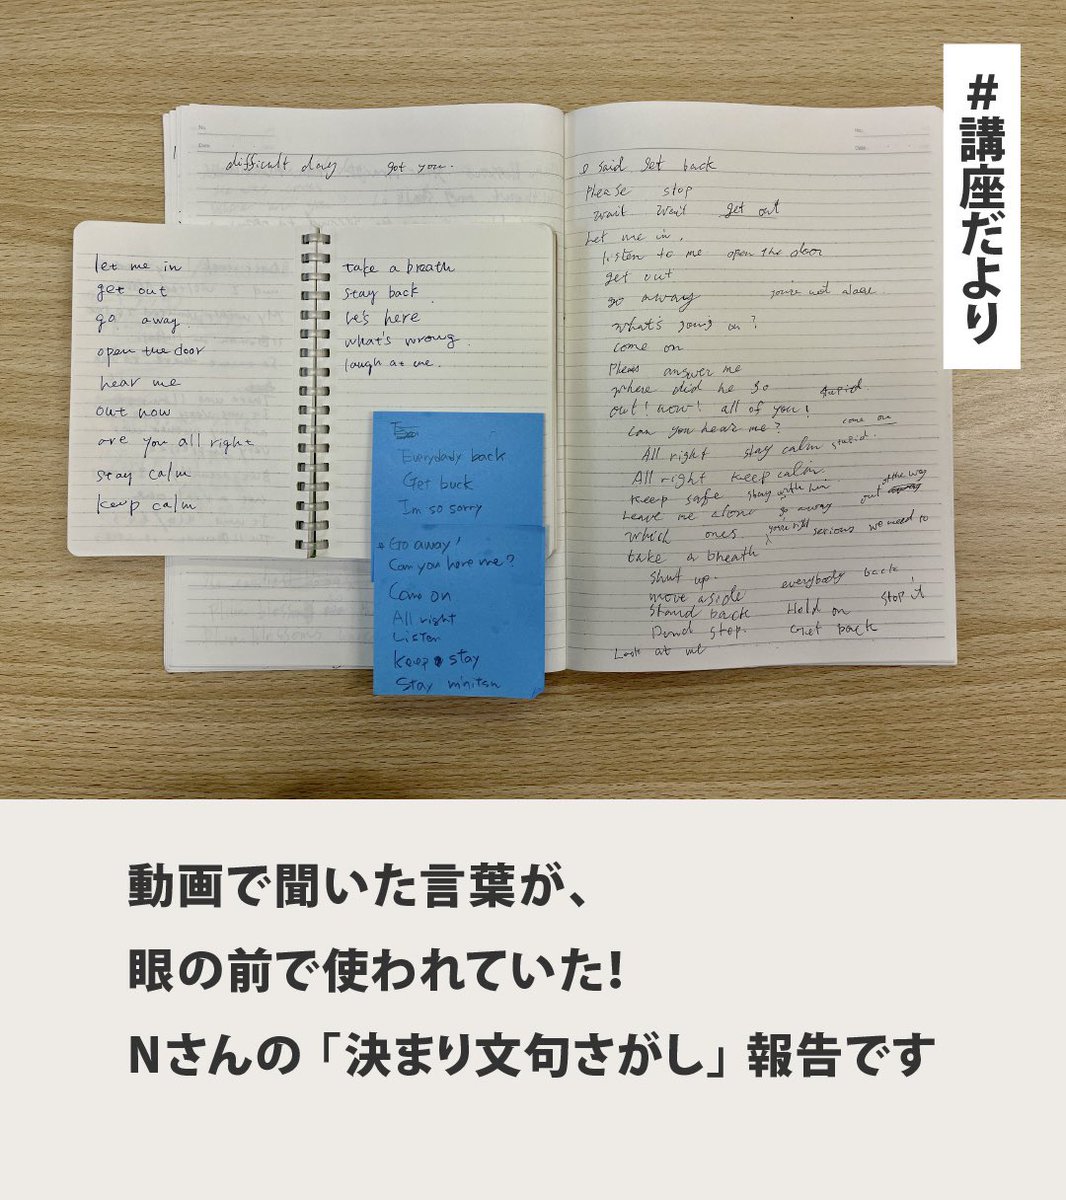 #講座だより
difficult day got you.
let me in
get out
go away.
open the door
hear me
out now
are you all right
stay calm
keep calm
take a breath
stay back
he's here
what's wrong.
laugh at me.
Everydady back
Get buck
I'm so sorry
Go away!
Can you here me?
Come on
All right
Listen
keep stay
Stay
I said get back
Please stop
wait wait get out
Let me in.
listen to me open the door
get out
go away you're not alone.
what's going on?
come on
answer me
where did he go stupid
out! now! all of you!
can you hear me? come on
All right stay calm stupid.
All right keep calm.
keep safe stay with him
Leave me alone go away out of the way
which ones you're right serious we need to
take a bheath
Shut up.
move aside everybody back
Stand back Hold on Stop it
stop. Get back
Look at me
動画で聞いた言葉が、
眼の前で使われていた!
Nさんの「決まり文句さがし」報告です